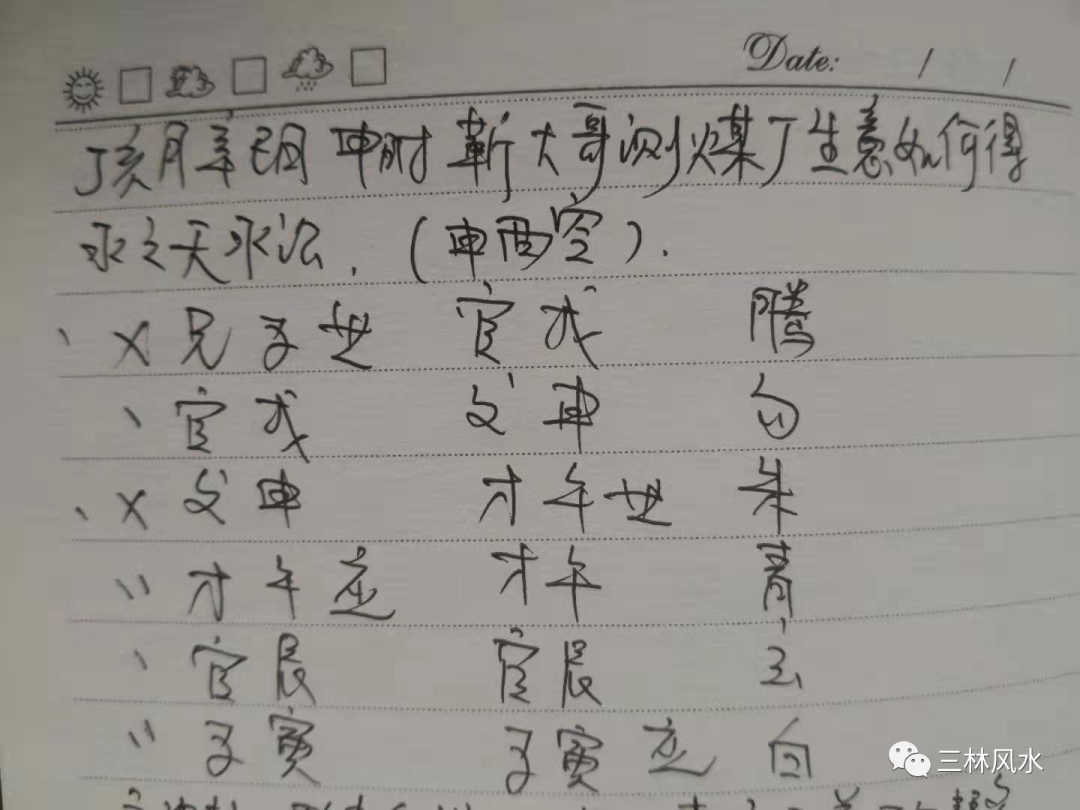 Date: / /
亥月辛巳日 申时 靳大哥测煤厂生意如何得
水之天水讼.(申酉空).
、 × 兄子世 官戌 腾
、 官戌 父申 勾
、 × 父申 才午世 朱
〃 才午应 才午 青
、 官辰 官辰 玄
〃 子寅 子寅应 白
三林风水